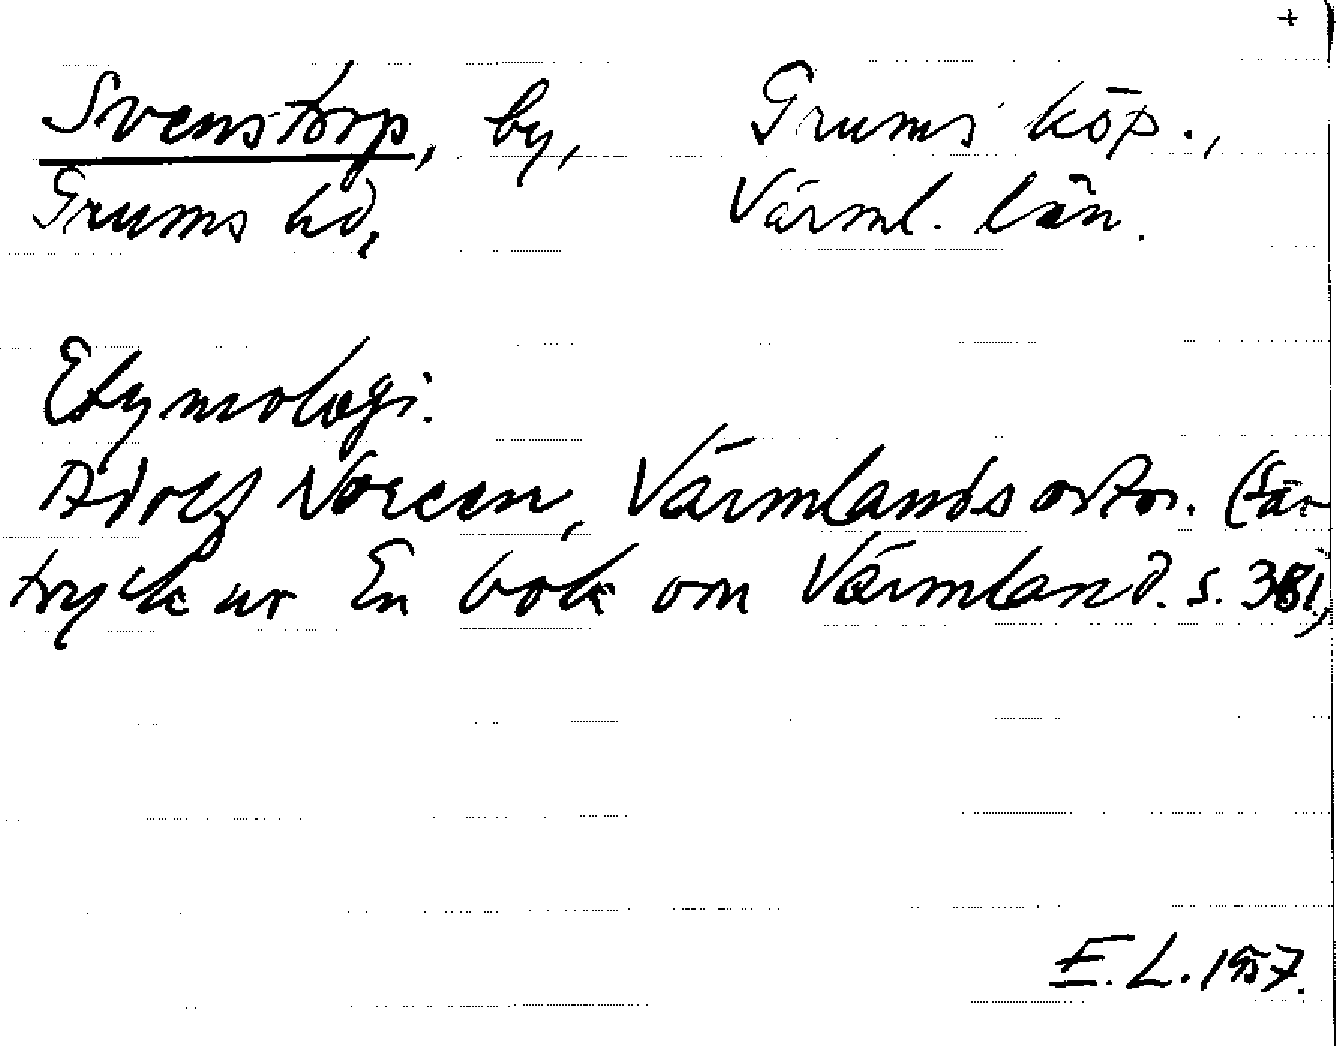 +
Svenstorp, by, Grums köp.,
Grums hd, Värml. län.
Etymologi.
Adolf Noreen, Värmlands ortn. (Sär-
tryck ur En bok om Värmland. s. 381.)
E. L. 1957.